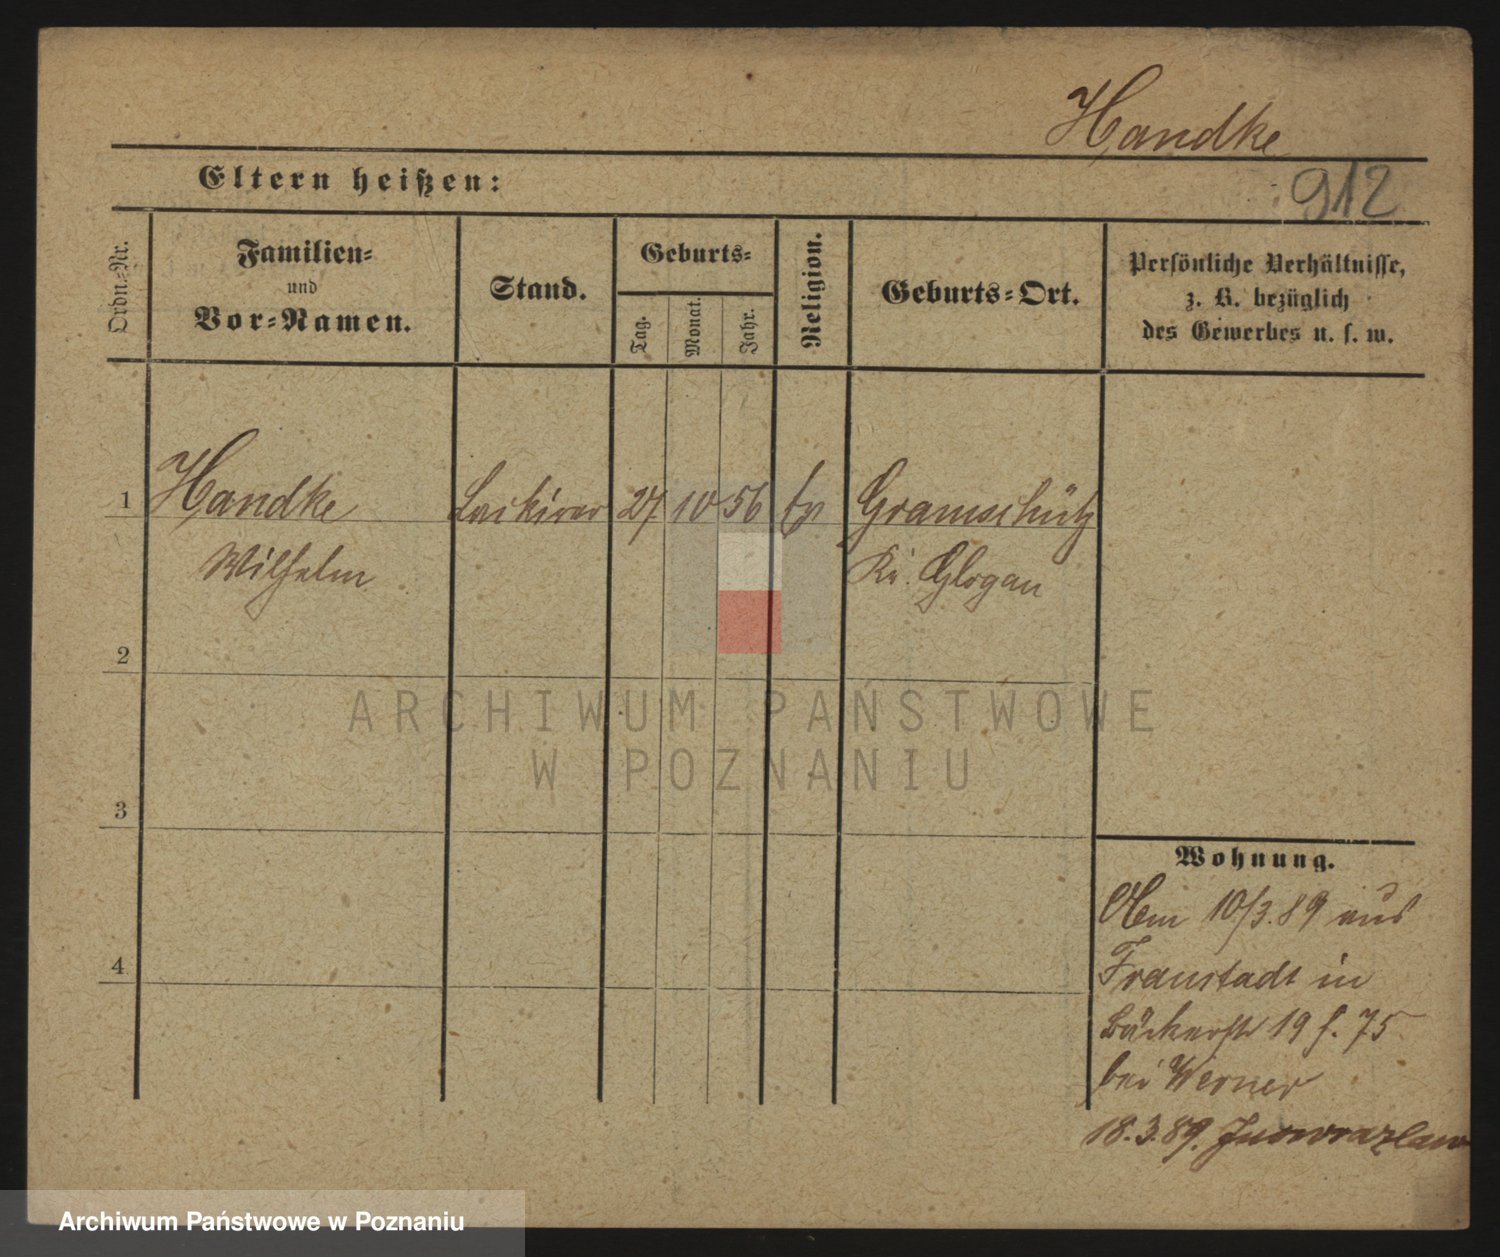 Handke
Eltern heißen:
912
Ordn.-Nr.
Familien-
und
Vor-Namen.
Stand.
Geburts-
Tag.
Monat.
Jahr.
Religion.
Geburts-Ort.
Persönliche Verhältnisse,
z. B. bezüglich
des Gewerbes u. s. w.
1 Handke Lackirer 27 10 56 Ev Gramschütz
Wilhelm Kr. Glogau
2
3
4
Wohnung.
Am 10/3.89 aus
Fraustadt in
Bäckerstr 19 f. 75
bei Werner
18.3.89. Inowrazlaw
ARCHIWUM PAŃSTWOWE
W POZNANIU
Archiwum Państwowe w Poznaniu